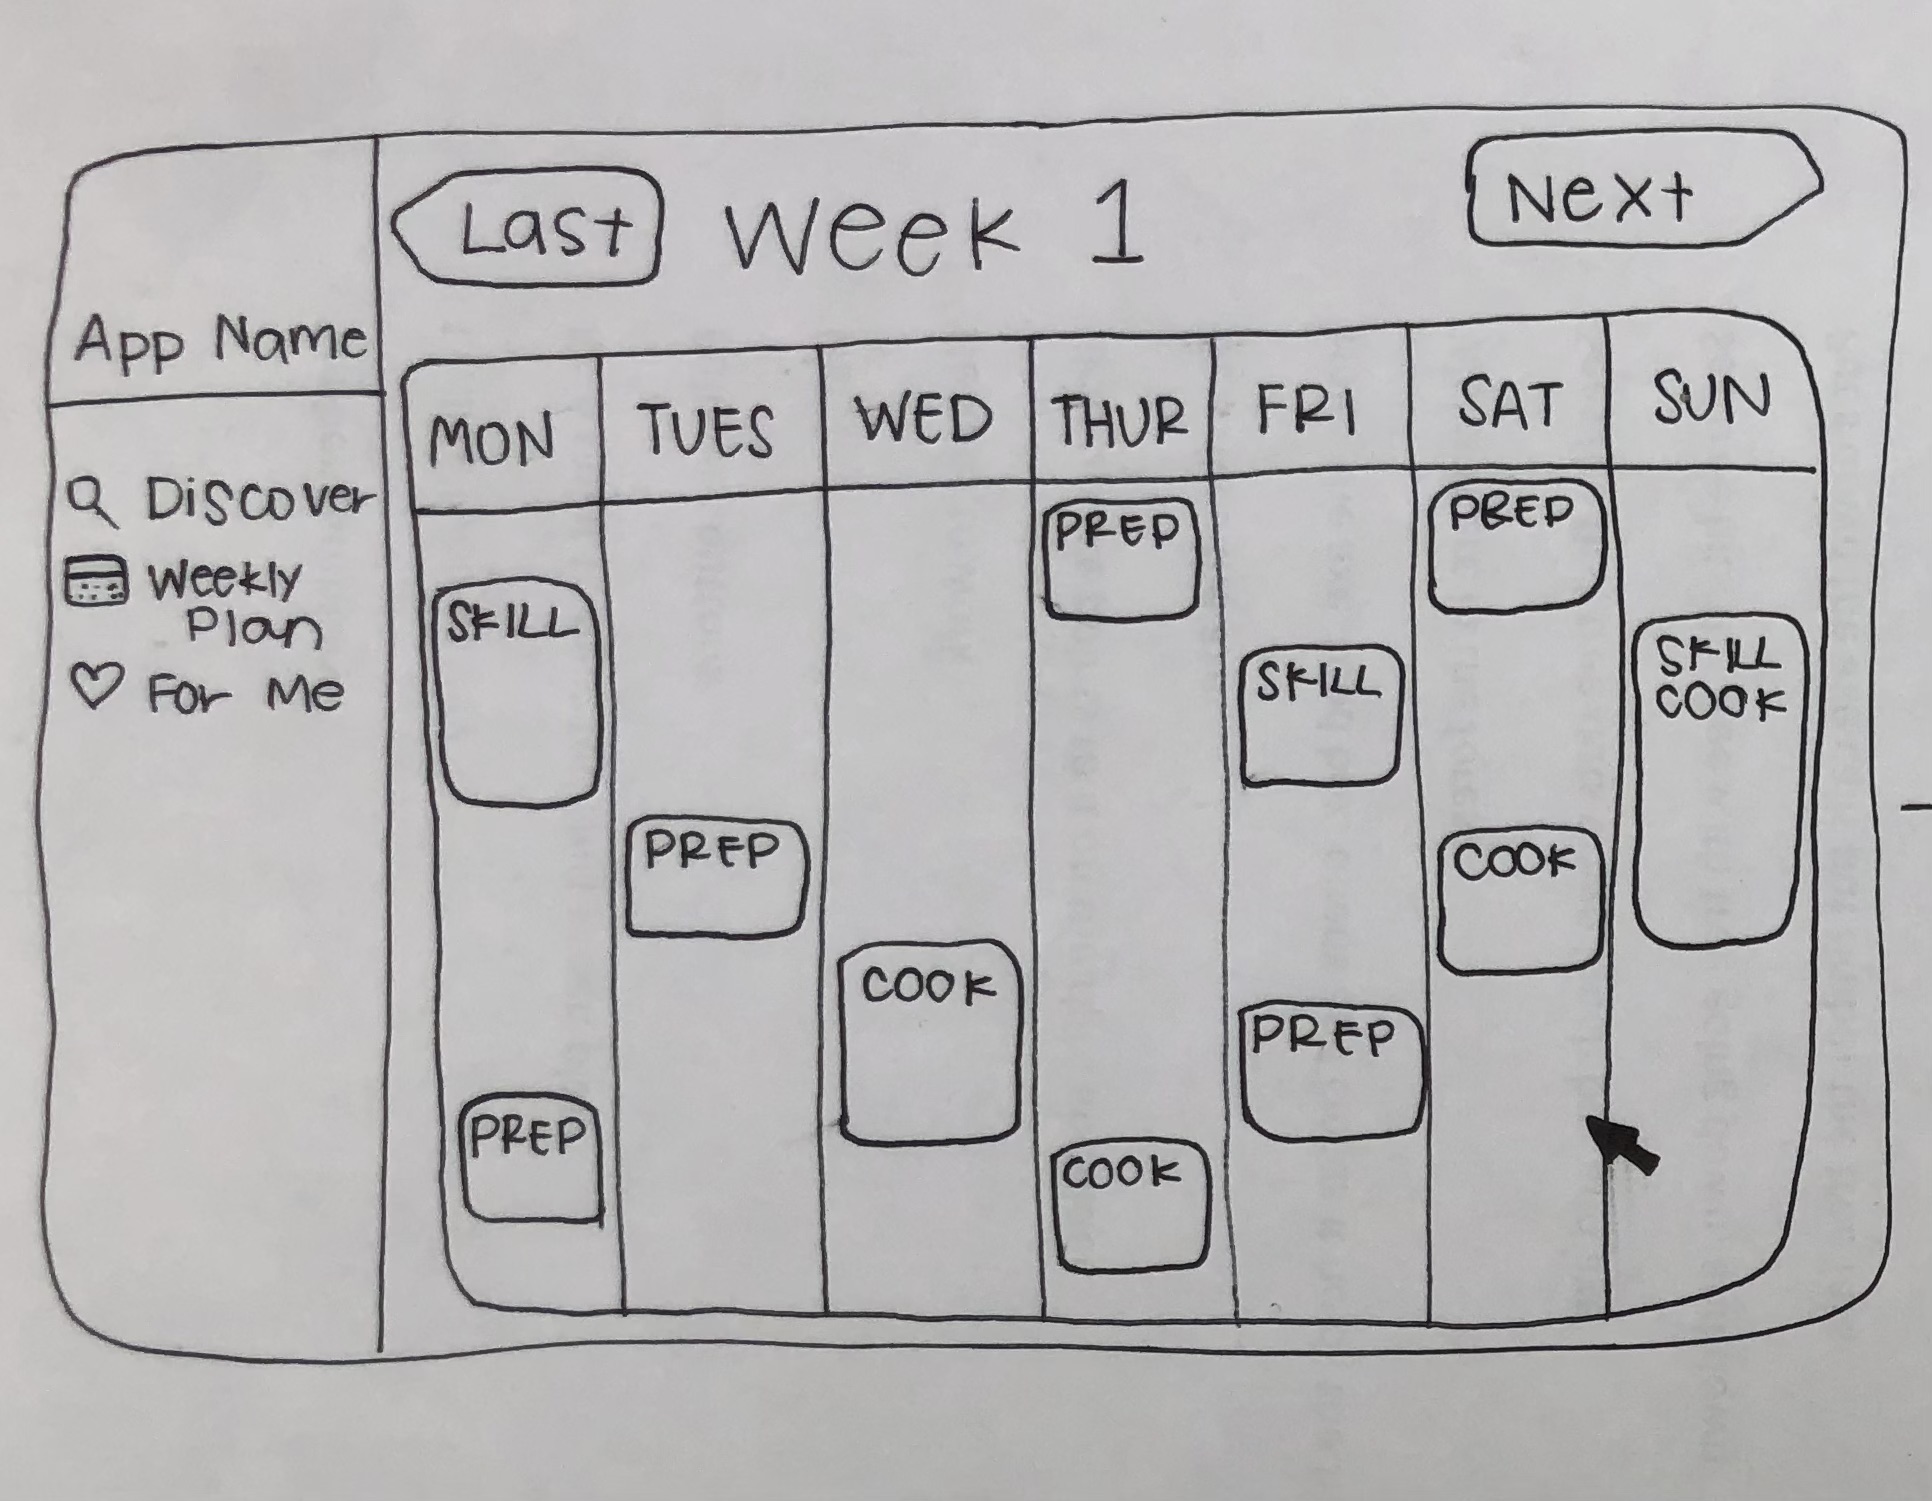 App Name
Discover
Weekly
Plan
For Me
Last
Week 1
Next
MON
TUES
WED
THUR
FRI
SAT
SUN
SKILL
PREP
PREP
COOK
PREP
COOK
SKILL
PREP
PREP
COOK
SKILL
COOK